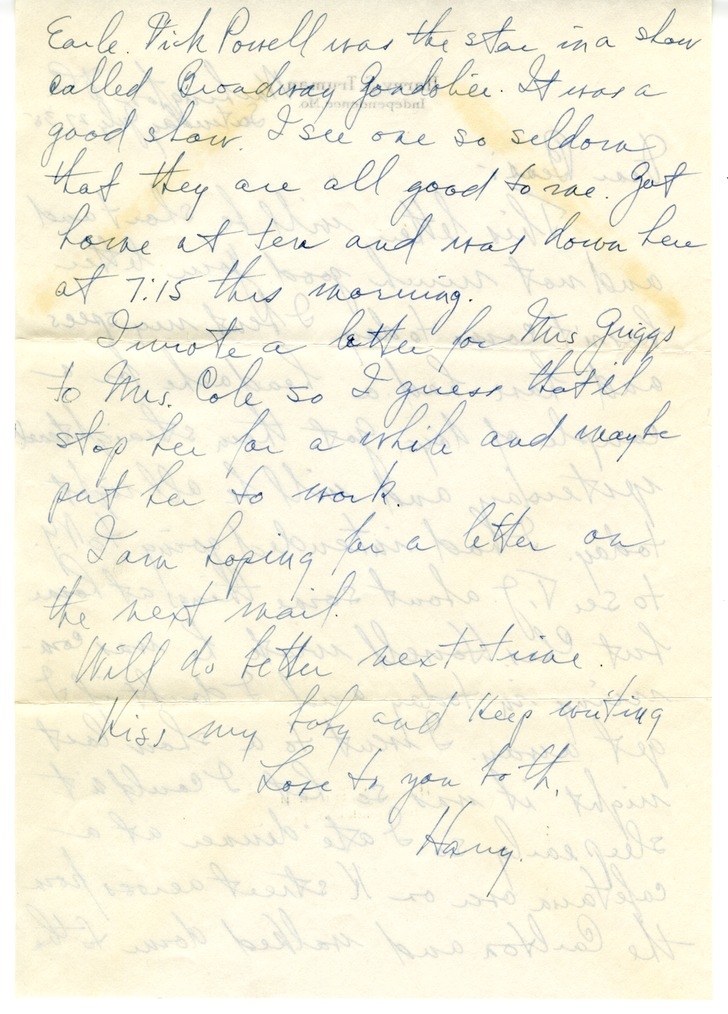 Earle. Dick Powell was the star in a show
called Broadway Gondolier. It was a
good show. I see one so seldom
that they are all good to me. Got
home at ten and was down here
at 7:15 this morning.
I wrote a letter for Mrs Griggs
to Mrs. Cole so I guess that'll
stop her for a while and maybe
put her to work.
I am hoping for a letter on
the next mail.
Will do better next time.
Kiss my baby and keep writing
Love to you both,
Harry.